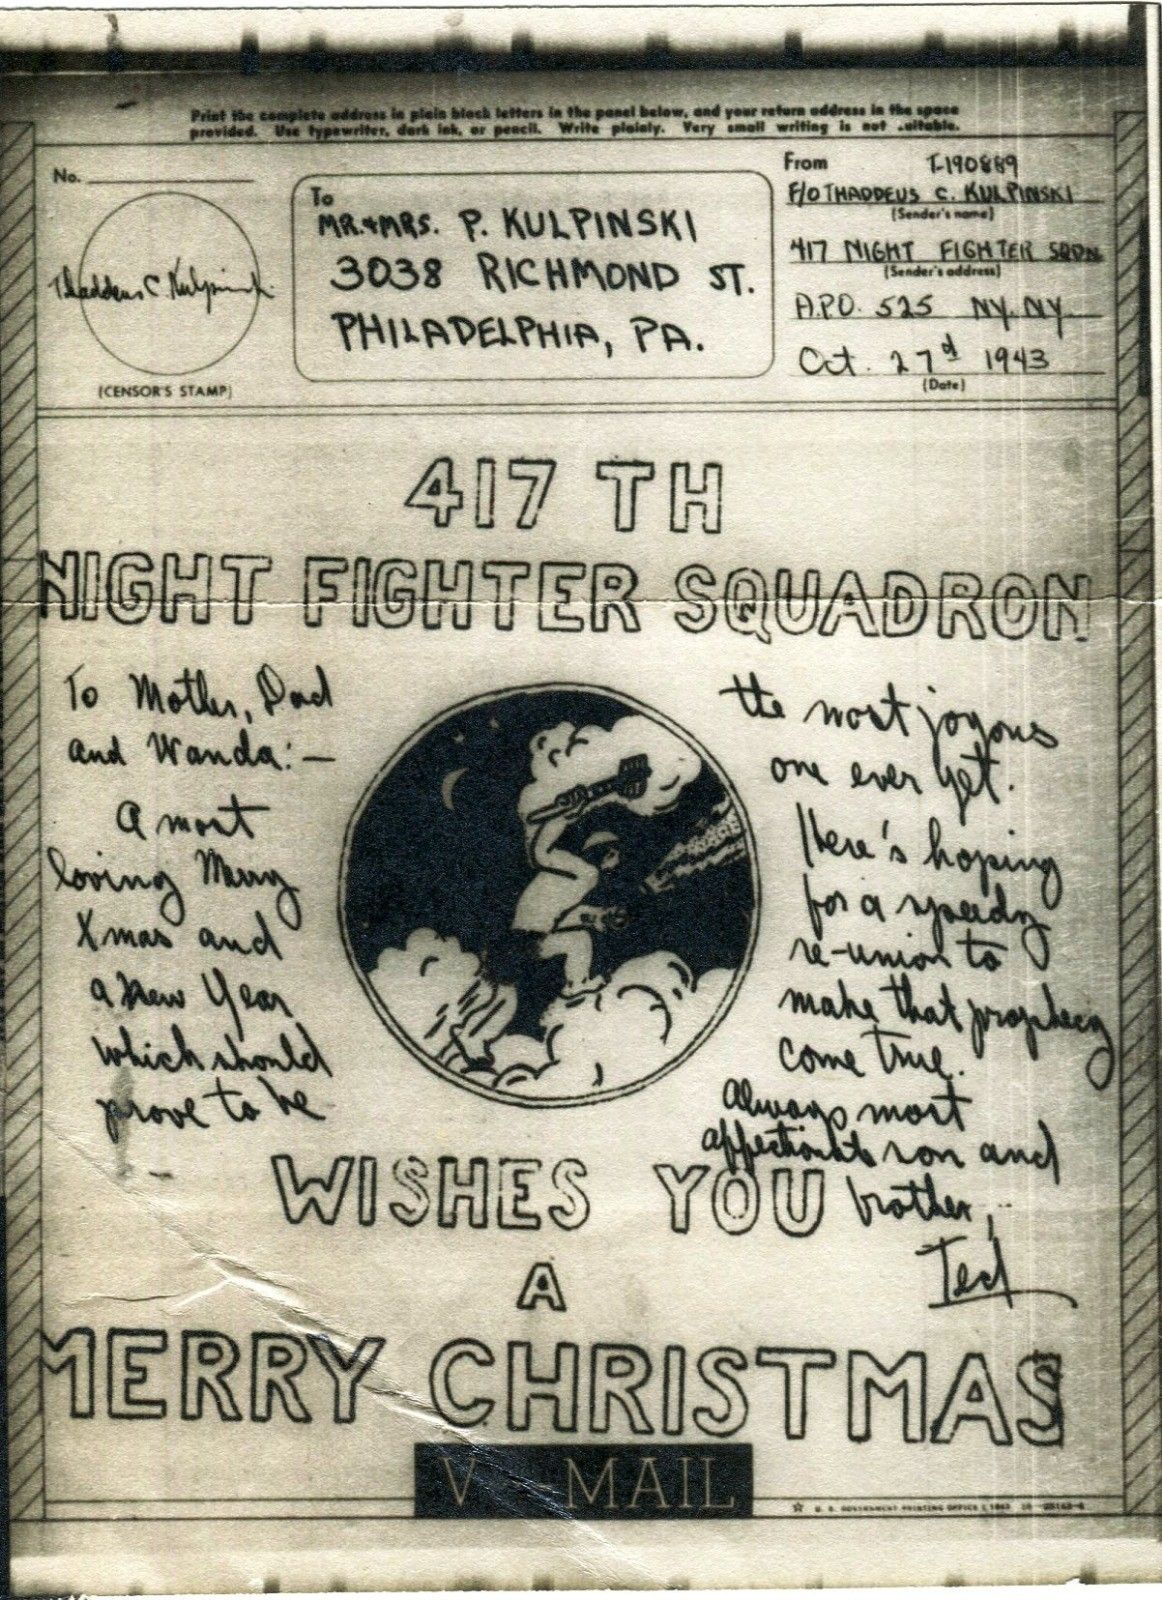 Print the complete address in plain block letters in the panel below, and your return address in the space
provided. Use typewriter, dark ink, or pencil. Write plainly. Very small writing is not suitable.
No.
Thaddeus C Kulpinski
(CENSOR'S STAMP)
To
MR. & MRS. P. KULPINSKI
3038 RICHMOND ST.
PHILADELPHIA, PA.
From T-190889
F/O THADDEUS C. KULPINSKI
(Sender's name)
417 NIGHT FIGHTER SQDN
(Sender's address)
A.P.O. 525 NY. NY.
Oct. 27d 1943
(Date)
417 TH
NIGHT FIGHTER SQUADRON
To Mother, Dad
and Wanda:—
A most
loving Merry
Xmas and
a New Year
which should
prove to be
the most joyous
one ever yet.
Here's hoping
for a speedy
re-union to
make that prophecy
come true.
Always most
affectionate son and
brother,
Ted
WISHES YOU
A
MERRY CHRISTMAS
V MAIL
U. S. GOVERNMENT PRINTING OFFICE : 1943